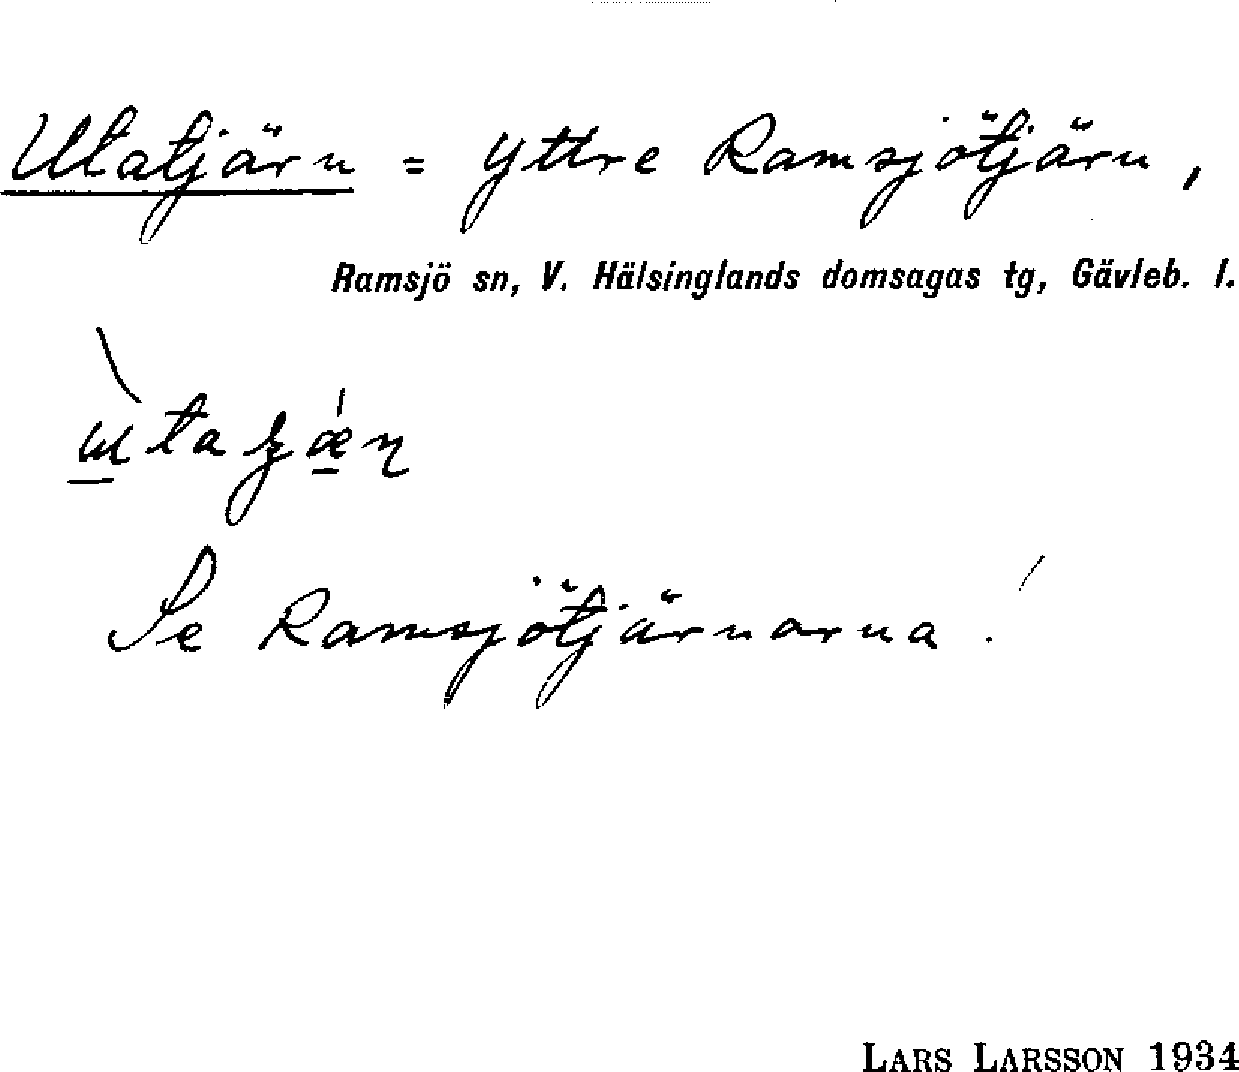 Utatjärn = Yttre Ramsjötjärn,
Ramsjö sn, V. Hälsinglands domsagas tg, Gävleb. l.
Se Ramsjötjärnarna!
LARS LARSSON 1934